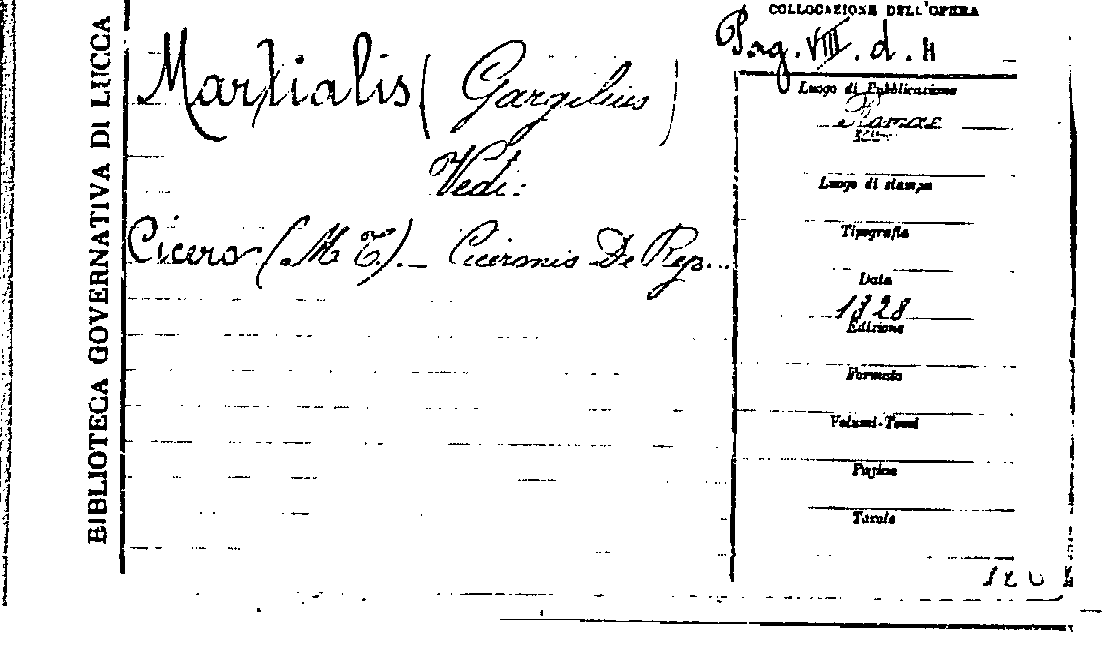 BIBLIOTECA GOVERNATIVA DI LUCCA
COLLOCAZIONE DELL'OPERA
Pag. VIII. d. H
Martialis (Gargilius)
Vedi:
Cicero (M. T.) - Ciceronis De Rep...
Luogo di Pubblicazione
Romae
Luogo di stampa
Tipografia
Data
1828
Edizione
Formato
Volumi-Tomi
Pagine
Tavole